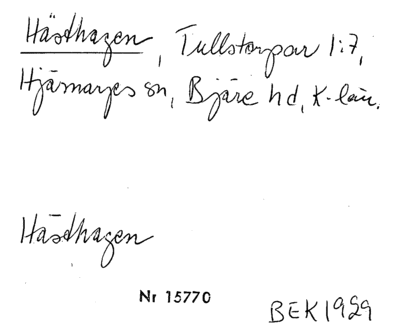 Hästhagen, Tullstorpar 1:7,
Hjärnarps sn, Bjäre hd, K-län.
Hästhagen
Nr 15770
BEK 1929